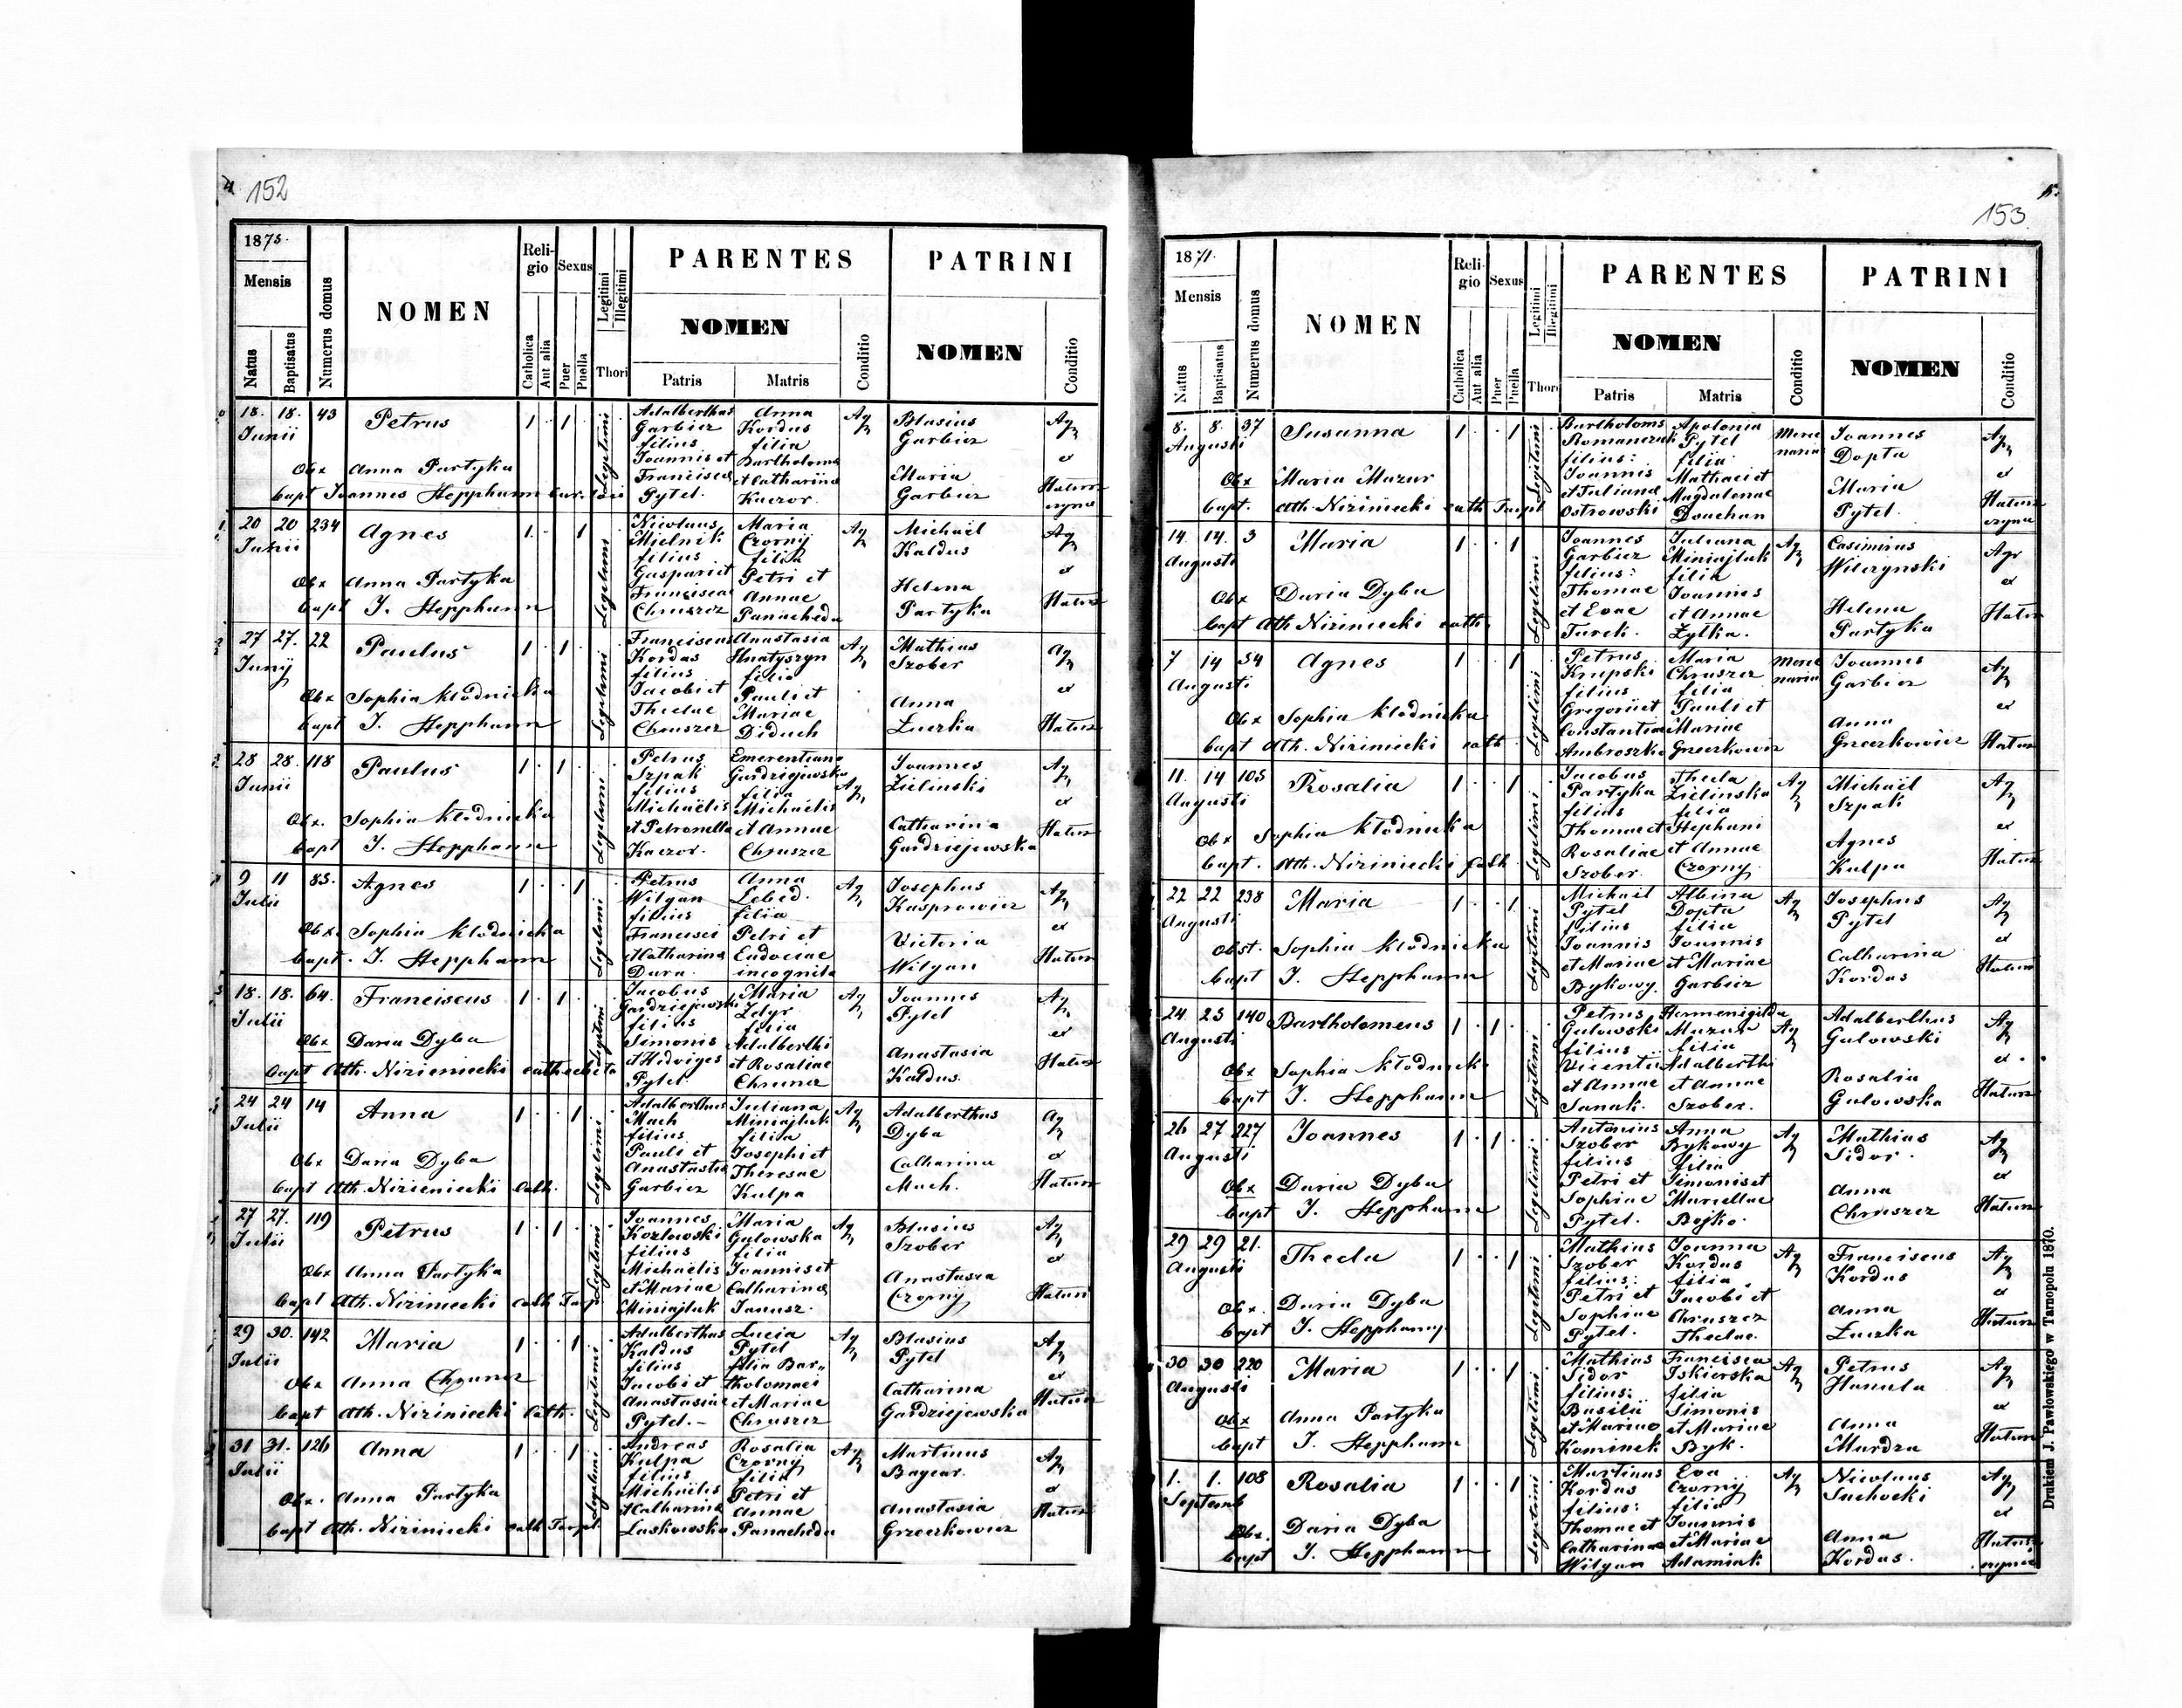 4
152
1875.
Mensis
Natus
Baptisatus
Numerus domus
NOMEN
Reli-
gio
Catholica
Aut alia
Sexus
Puer
Puella
Legitimi
Illegitimi
Thori
PARENTES
NOMEN
Patris
Matris
Conditio
PATRINI
NOMEN
Conditio
18. 18. 43 Petrus 1 . 1 . Legitimi
Junii
Obx Anna Partyka
bapt Joannes Hepphann
Adalberthus Anna
Garbicz Kordus
filius filia
Joannis et Bartholomei
Francisca et Catharina
Pytel. Kaczor.
Blasius
Garbicz
et
Maria
Garbicz
20 20 234 Agnes 1 . . 1 Legitimi
Junii
Obx Anna Partyka
bapt J. Hepphann
Nicolaus Maria
Mielnik Czorny
filius filia
Gaspari et Petri et
Franciscae Annae
Chruszcz Panacheda
Michaël
Kaldus
et
Helena
Partyka
27 27. 22 Paulus 1 . 1 . Legitimi
Junij
Obx Sophia Kłodnicka
bapt J. Hepphann
Franciscus Anastasia
Kordas Hnatyszyn
filius filia
Jacobi et Pauli et
Theclae Mariae
Chruszcz Diduch
Mathias
Szober
et
Anna
Luczka
28 28. 118 Paulus 1 . 1 . Legitimi
Junii
Obx. Sophia Kłodnicka
bapt J. Hepphann
Petrus Emerentiana
Szpak Gardziejewska
filius filia
Michaëlis Michaëlis
et Petronella et Annae
Kaczor. Chruszcz
Joannes
Zielinski
et
Catharina
Gardziejewska
9 11 83. Agnes 1 . . 1 Legitimi
Julii
Obx. Sophia Kłodnicka
bapt. J. Hepphann
Petrus Anna
Wilgan Lebed.
filius filia
Francisci Petri et
et Catharina Eudociae
Dura. incognita
Josephus
Kasprowicz
et
Victoria
Wilgan
18. 18. 64. Franciscus 1 . 1 . Legitimi
Julii
Obx Daria Dyba
bapt Ath. Niziniecki
Jacobus Maria
Gardziejewski Zdyr
filius filia
Simonis Adalberthi
et Hedviges et Rosaliae
Pytel
Joannes
Pytel
et
Anastasia
Kaldus.
24 24 14 Anna 1 . . 1 Legitimi
Julii
Obx Daria Dyba
bapt Ath. Niziniecki Cath.
Adalberthus Juliana
Mach Miniajluk
filius filia
Pauli et Josephi et
Anastasia Theresae
Garbicz Kulpa
Adalberthus
Dyba
et
Catharina
Mach.
27 27. 119 Petrus 1 . 1 . Legitimi
Julii
Obx Anna Partyka
bapt Ath. Niziniecki cath
Joannes Maria
Kozlowski Gulowska
filius filia
Michaëlis Joannis et
et Mariae Catharina
Miniajluk Janusz.
Blasius
Szober
et
Anastasia
Czorny
29 30. 142 Maria 1 . . 1 Legitimi
Julii
Obx Anna
bapt Ath. Niziniecki Cath.
Adalberthus Lucia
Kaldus Pytel
filius filia Bar„
Jacobi et tholomaei
Anastasiae et Mariae
Pytel.- Chruszcz
Blasius
Pytel
et
Catharina
Gardziejewska
31 31. 126 Anna 1 . . 1 Legitimi
Julii
Obx. Anna Partyka
bapt Ath. Niziniecki cath
Andreas Rosalia
Kulpa Czorny
filius filia
Michaëlis Petri et
et Catharina Annae
Laskowska Panacheda
Martinus
et
Anastasia
Grzeczkowicz
153.
1871.
Mensis
Natus
Baptisatus
Numerus domus
NOMEN
Reli-
gio
Catholica
Aut alia
Sexus
Puer
Puella
Legitimi
Illegitimi
Thori
PARENTES
NOMEN
Patris
Matris
Conditio
PATRINI
NOMEN
Conditio
8. 8. 37 Susanna 1 . . 1 Legitimi
Augusti
Obx Maria Mazur
bapt. Ath. Niziniecki cath
Apolonia
Pytel
filius: filia
Joannis Mathaei et
et Juliana Magdalenae
Ostrowski
Joannes
Dopta
et
Maria
Pytel.
14. 14. 3 Maria 1 . . 1 Legitimi
Augusti
Obx Daria Dyba
bapt Ath Niziniecki cath.
Joannes Juliana
Garbicz Miniajluk
filius: filia
Thomae Joannis
et Evae et Annae
Turek. Zytka.
Casimirus
Wilczynski
et
Helena
Partyka
7 14 54 Agnes 1 . . 1 Legitimi
Augusti
Obx Sophia Kłodnicka
bapt Ath. Niziniecki cath
Petrus Maria
Krupski Chruszcz
filius filia
Gregorii et Pauli et
Constantiae Mariae
Ambroszko Grzeczkowicz
Joannes
Garbicz
et
Anna
Grzeczkowicz
11. 14 105 Rosalia 1 . . 1 Legitimi
Augusti
Obx Sophia Kłodnicka
bapt. Ath. Niziniecki Cath
Jacobus Thecla
Partyka Zielinska
filius filia
Thomae et Stephani
Rosaliae et Annae
Szober. Czorny
Michaël
Szpak
et
Agnes
Kulpa
22 22 238 Maria 1 . . 1 Legitimi
Augusti
Obst. Sophia Kłodnicka
bapt J. Hepphann
Michaël Albina
Pytel Dopta
filius filia
Joannis Joannis
et Mariae et Mariae
Bykowy. Garbicz
Josephus
Pytel
et
Catharina
Kordas
24. 25 140 Bartholomeus 1 . 1 . Legitimi
Augusti
Obx Sophia Kłodnick
bapt J. Hepphann
Petrus Hermenigilda
Gulowski Mazur
filius filia
Vicentii Adalberthi
et Annae et Annae
Janak. Szober.
Adalberthus
Gulowski
et
Rosalia
Gulowska
26 27 227 Joannes 1 . 1 . Legitimi
Augusti
Obx Daria Dyba
bapt J. Hepphann
Antonius Anna
Szober Bykowy
filius filia
Petri et Simonis et
Sophiae Marcellae
Pytel. Bojko.
Mathias
Sidor.
et
Anna
Chruszcz
29 29 21. Thecla 1 . . 1 Legitimi
Augusti
Obx. Daria Dyba
bapt J. Hepphann
Mathias Joanna
Szober Kordus
filius: filia
Petri et Jacobi et
Sophiae Chruszcz
Pytel. Theclae.
Franciscus
Kordus
et
Anna
Luczka
30 30 220 Maria 1 . . 1 Legitimi
Augusti
Obx Anna Partyka
bapt J. Hepphann
Mathias Francisca
Sidor Iskierska
filius: filia
Basilii Simonis
et Mariae et Mariae
Kominek Byk.
Petrus
Hanula
et
Anna
Murdza
1. 1. 108 Rosalia 1 . . 1 Legitimi
Septemb
Obx. Daria Dyba
bapt J. Hepphann
Martinus Eva
Kordus Czorny
filius: filia
Thomae et Joannis
Catharinae et Mariae
Wilgan Adamiak
Nicolaus
Suchocki
et
Anna
Kordus.
Drukiem J. Pawłowskiego w Tarnopolu 1870.